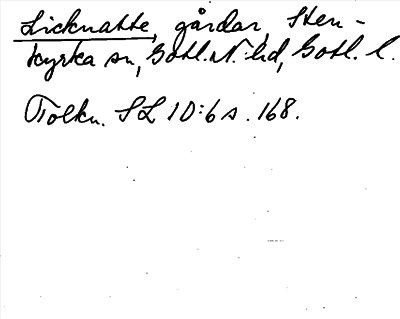 Licknatte, gårdar, Sten-
kyrka sn, Gotl. N. hd, Gotl. l.
Tolkn. SL 1D:6 s. 168.